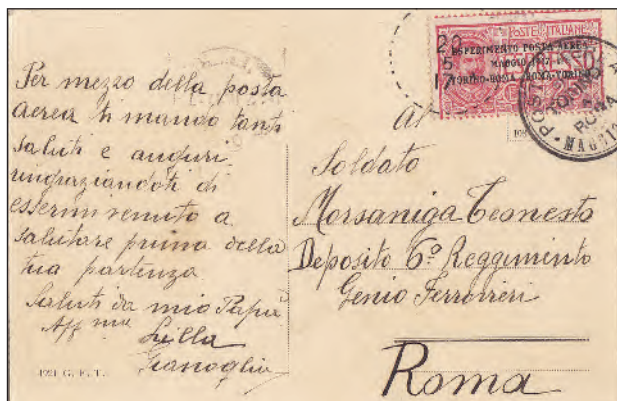 Per mezzo della posta
aerea ti mando tanti
saluti e auguri
ringraziandoti di
essermi venuto a
salutare prima della
tua partenza
Saluti da mio Papà
Aff ma
Lilla
Gianoglio
G. E. T.
POSTE ITALIANE
ESPERIMENTO POSTA AEREA
MAGGIO 1917
TORINO-ROMA · ROMA-TORINO
20
5
17
POST
TORINO
ROMA
Al
Soldato
Morsaniga Teonesto
Deposito 6º Reggimento
Genio Ferrovieri
Roma